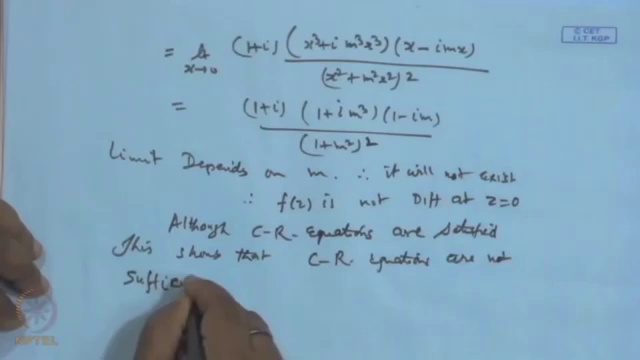 = lt x→0 (1+i) (x³+i m³x³) (x-imx) / (x²+m²x²)²
C CET
I.I.T. KGP
= (1+i) (1+i m³) (1-im) / (1+m²)²
Limit Depends on m. ∴ it will not exist
∴ f(z) is not Diff at z=0
Although C-R. Equations are satisfied
This shows that C-R. Equations are not
Suffic
NPTEL